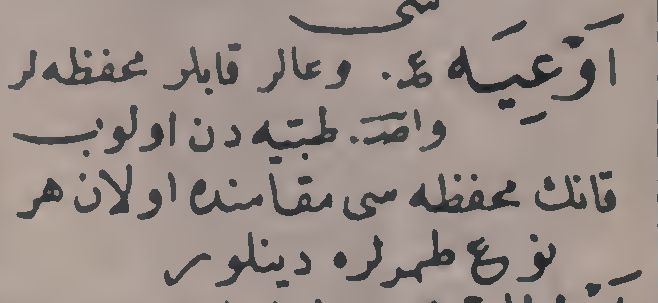 سی
اَوْعِیَه ع. وعالر قابلر محفظه‌لر
واصط. طبیه دن اولوب
قانك محفظه سی مقامنده اولان هر
نوع طمرلره دینلور